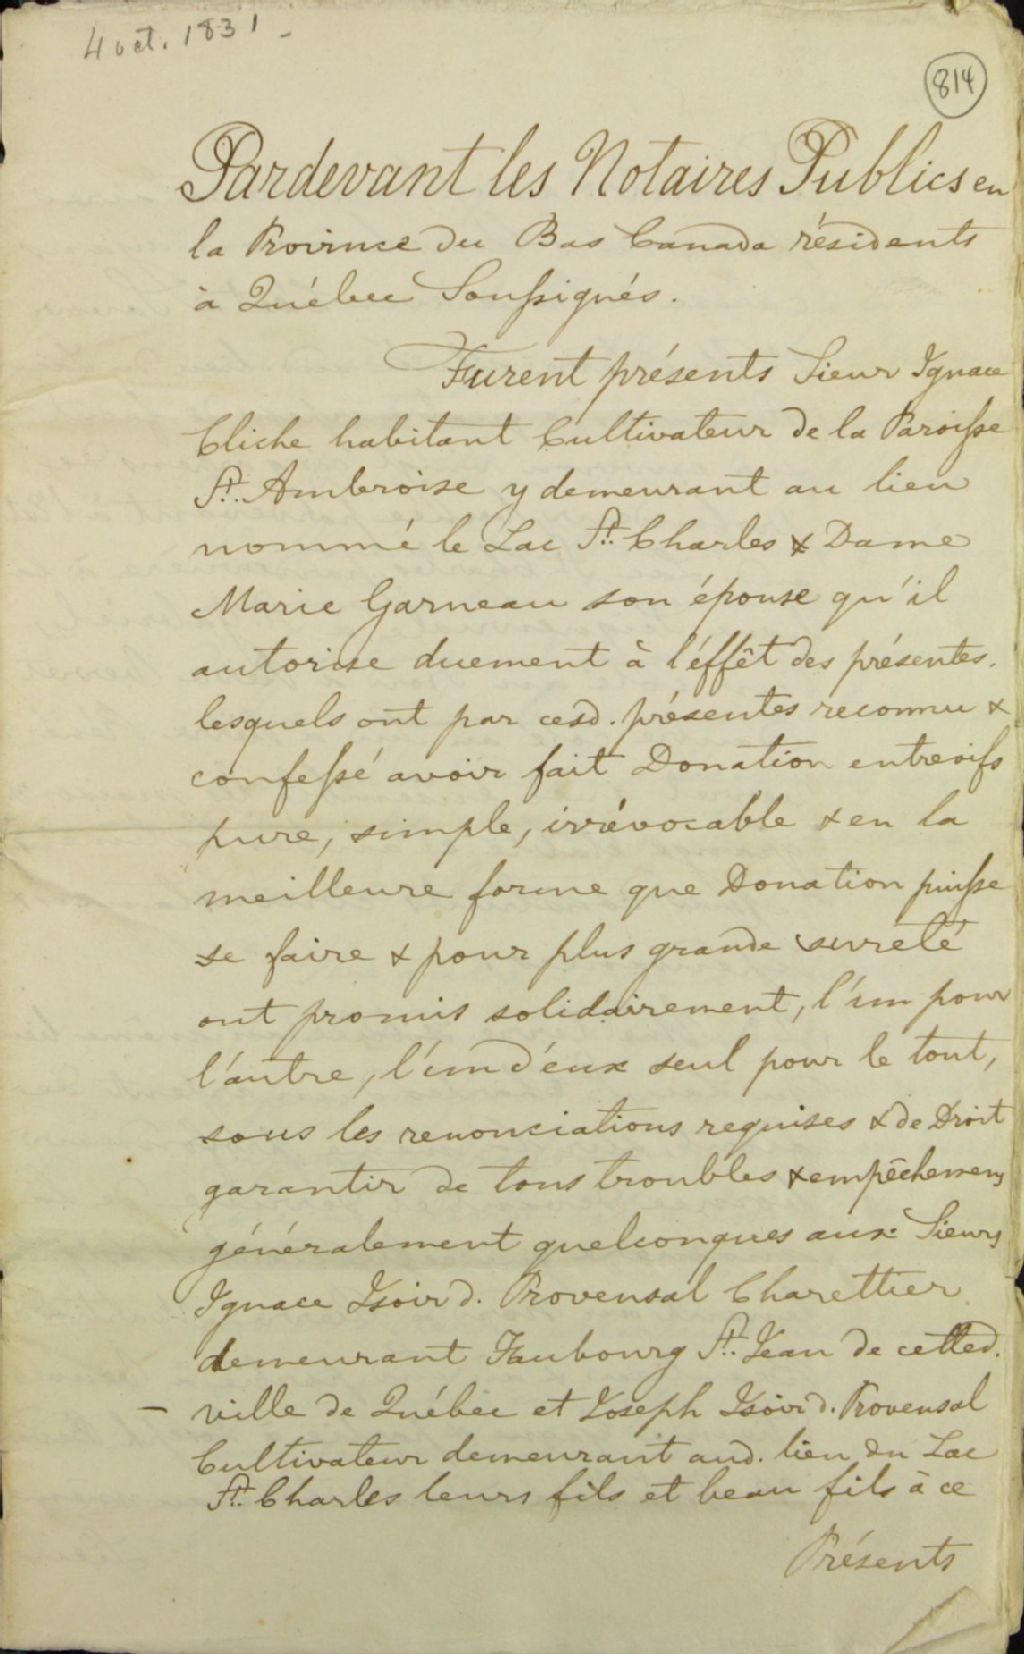 4 oct. 1831 -
814
Pardevant les Notaires Publics en
la Province du Bas Canada résidents
à Québec Soussignés.
Furent présents Sieur Ignace
Cliche habitant Cultivateur de la Paroisse
St. Ambroise y demeurant au lieu
nommé le Lac St. Charles & Dame
Marie Garneau son épouse qu'il
autorise duement à l'éffêt des présentes.
lesquels ont par cesd. présentes reconnu &
confessé avoir fait Donation entrevifs
pure, simple, irrévocable & en la
meilleure forme que Donation puisse
se faire & pour plus grande sureté
ont promis solidairement, l'un pour
l'autre, l'un d'eux seul pour le tout,
sous les renonciations requises & de Droit
garantir de tous troubles & empêchemens
généralement quelconques aux Sieurs
Ignace Isoir d. Provensal Charettier
demeurant Faubourg St. Jean de cetted.
- ville de Québec et Joseph Isoir d. Provensal
Cultivateur demeurant aud. lieu du Lac
St. Charles leurs fils et beau fils à ce
Présents